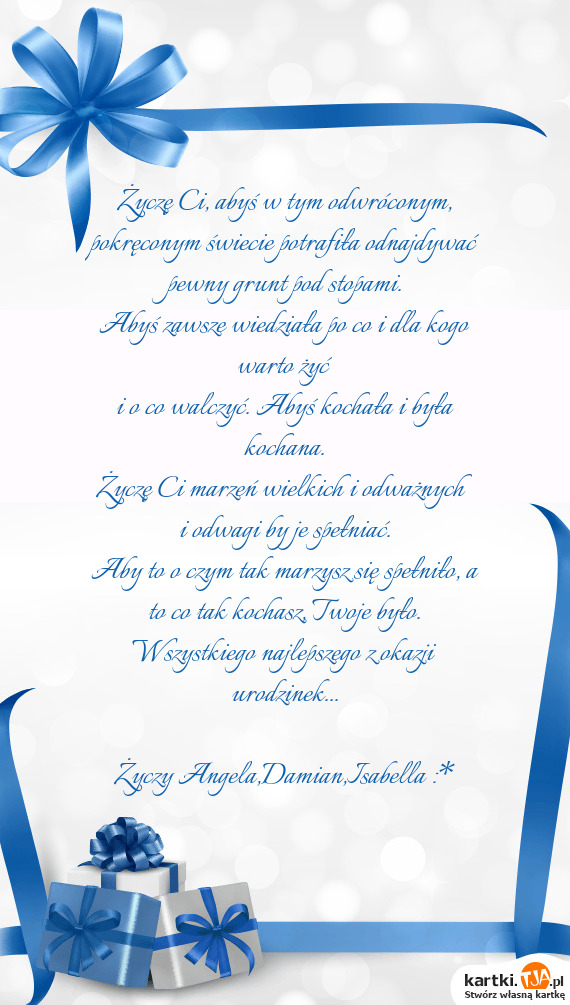 Życzę Ci, abyś w tym odwróconym,
pokręconym świecie potrafiła odnajdywać
pewny grunt pod stopami.
Abyś zawsze wiedziała po co i dla kogo
warto żyć
i o co walczyć. Abyś kochała i była
kochana.
Życzę Ci marzeń wielkich i odważnych
i odwagi by je spełniać.
Aby to o czym tak marzysz się spełniło, a
to co tak kochasz, Twoje było.
Wszystkiego najlepszego z okazji
urodzinek...
Życzy Angela,Damian,Isabella :*
kartki.TJA.pl
Stwórz własną kartkę